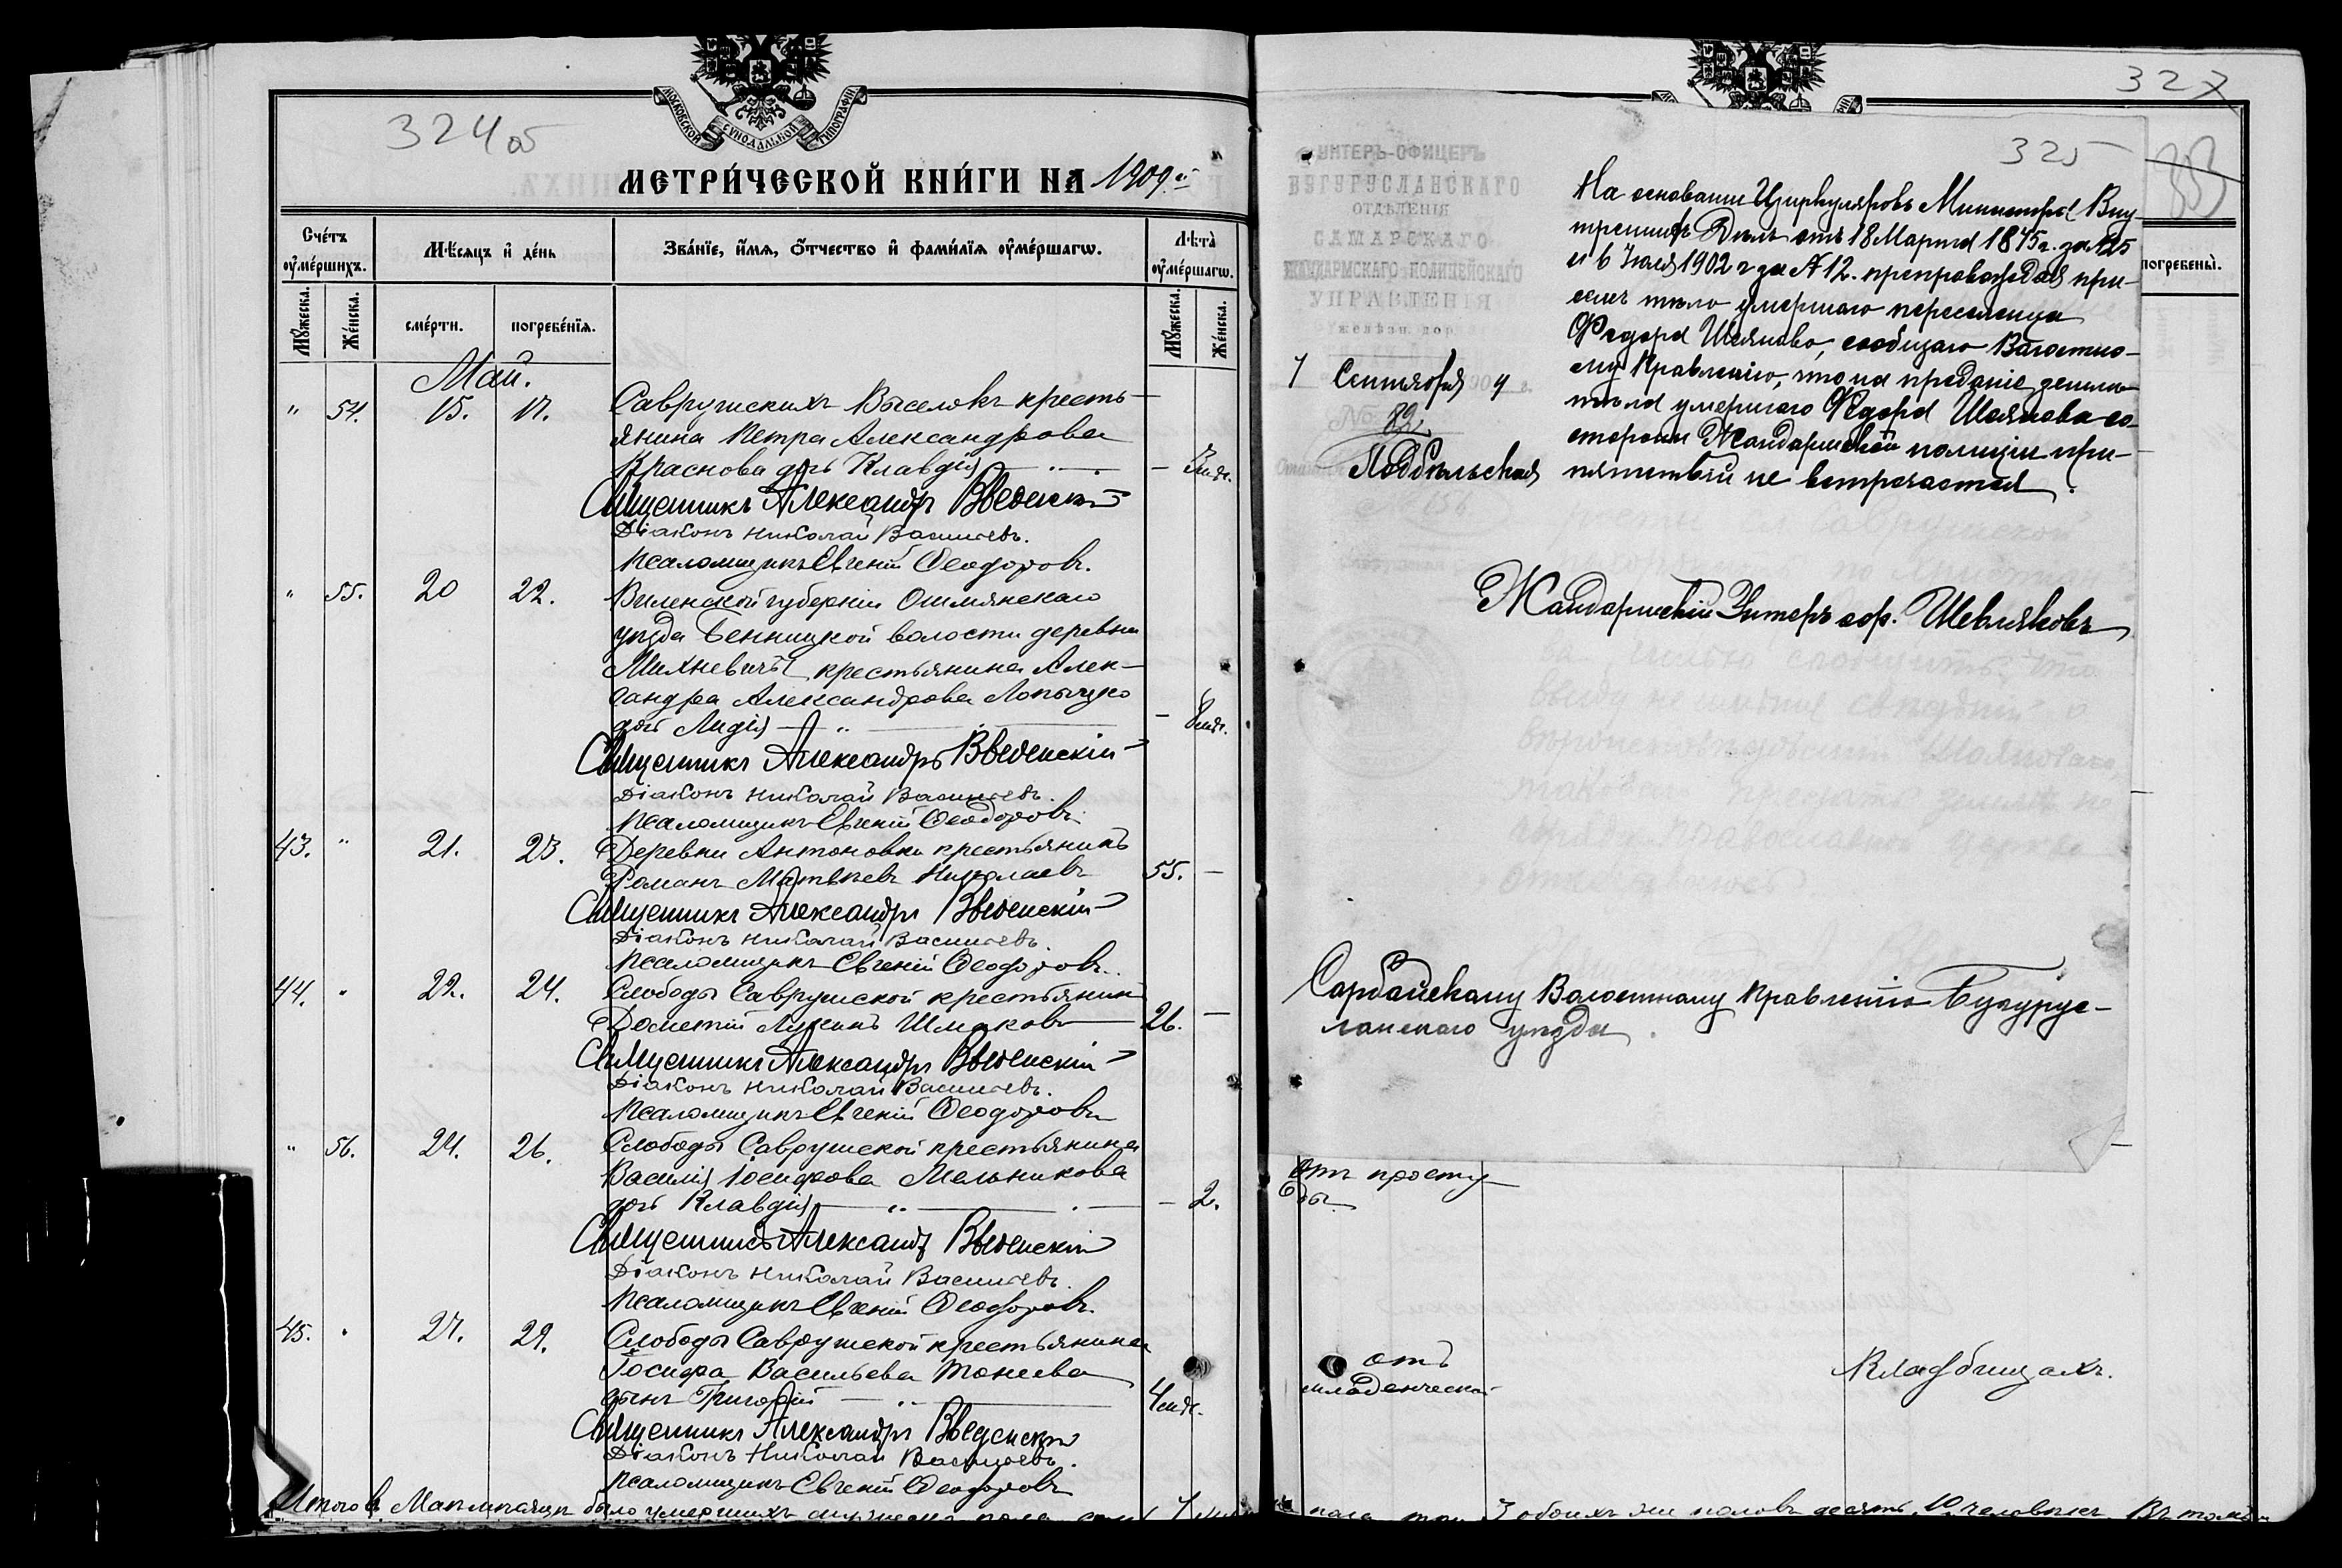 324 об
МОСКОВСКОЙ СУНОДАЛЬНОЙ ТИПОГРАФІИ
МЕТРИ́ЧЕСКОЙ КНИ́ГИ НА 1909 й
Сче́тъ ᲂу҆ме́ршихъ.
Мѣ́сяцъ и҆ де́нь
Зва́нїе, и҆́мѧ, ѻ҆́тчество и҆ фами́лїѧ ᲂу҆ме́ршагѡ.
Лѣта̀ ᲂу҆ме́ршагѡ.
Мꙋ́жеска.
Же́нска.
сме́рти.
погребе́нїѧ.
Мꙋ́жеска.
Же́нска.
Май.
" 54. 15. 17. Саврушскихъ Выселокъ кресть-
янина Петра Александрова
Краснова дочь Клавдія — 3 мѣс.
Священникъ Александръ Введенскій
Діаконъ Николай Васильевъ.
Псаломщикъ Евгеній Ѳеодоровъ.
" 55. 20 22. Виленской губерніи Ошмянскаго
уѣзда Бенницкой волости деревни
Михневичъ крестьянина Алек-
сандра Александрова
дочь Лидія — " — 8 мѣс.
Священникъ Александръ Введенскій
Діаконъ Николай Васильевъ.
Псаломщикъ Евгеній Ѳеодоровъ.
43. " 21. 23. Деревни Антоновки крестьянинъ
Романъ Матвѣевъ Николаевъ 55. —
Священникъ Александръ Введенскій
Діаконъ Николай Васильевъ.
Псаломщикъ Евгеній Ѳеодоровъ.
44. " 22. 24. Слободы Саврушской крестьянинъ
Дометій Лукинъ Шмаковъ 26. —
Священникъ Александръ Введенскій
Діаконъ Николай Васильевъ.
Псаломщикъ Евгеній Ѳеодоровъ
" 56. 24. 26. Слободы Саврушской крестьянина
Василія Іосифова Мельникова
дочь Клавдія — " — 2.
Священникъ Александръ Введенскій
Діаконъ Николай Васильевъ.
Псаломщикъ Евгеній Ѳеодоровъ.
45. " 27. 29. Слободы Саврушской крестьянина
Іосифа Васильева Тонеева
сынъ Григорій — " — 4 мѣс.
Священникъ Александръ Введенскій
Діаконъ Николай Васильевъ.
Псаломщикъ Евгеній Ѳеодоровъ
Итого въ Маѣ мѣсяцѣ было умершихъ мужеска пола 7
327
325
погребены̀.
УНТЕРЪ-ОФИЦЕРЪ
БУГУРУСЛАНСКАГО
ОТДѢЛЕНІЯ
САМАРСКАГО
ЖАНДАРМСКАГО ПОЛИЦЕЙСКАГО
УПРАВЛЕНІЯ
желѣзн. дор.
7 Сентября 190 9 г.
№ 82
Подбѣльская
На основаніи Циркуляровъ Министра Вну-
треннихъ Дѣлъ отъ 18 Марта 1875 г. за № 25
и 6 Іюля 1902 г за № 12. препровождая при-
семъ тѣло умершаго переселенца
Федора Шеянова, сообщаю Волостно-
му Правленію, что на преданіе землѣ
тѣла умершаго Федора Шеянова со
стороны Жандармской полиціи при-
пятствій не встрѣчается.
Жандармскій Унтеръ оф. Шевляковъ
Сарбайскому Волостному Правленію Бугурус-
ланскаго уѣзда.
Отъ просту-
ды
отъ
младенческой
Кладбищахъ.
пола три 3 обоихъ же половъ десять 10 человѣкъ Въ томъ